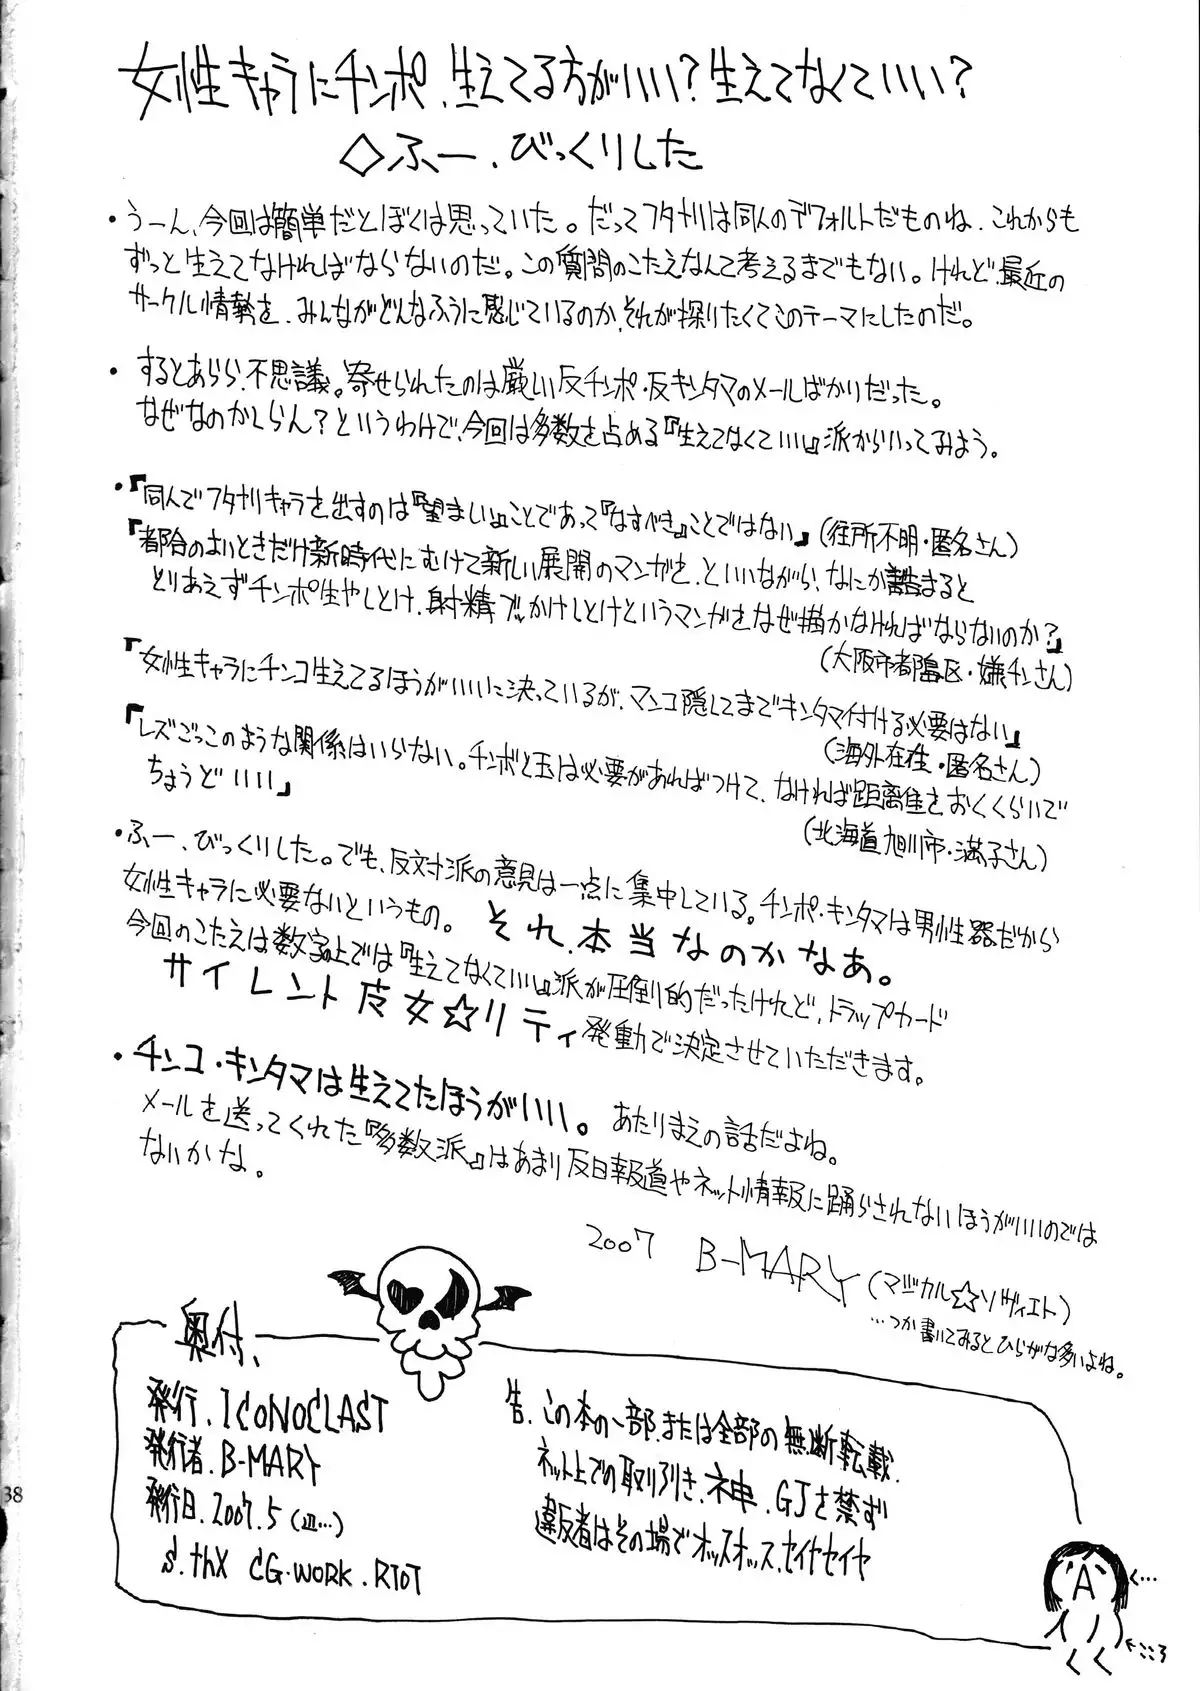 女性キャラにチンポ、生えてる方がいい？生えてなくていい？
◇ふー、びっくりした
・うーん、今回は簡単だとぼくは思っていた。だってフタナリは同人のデフォルトだものね、これからも
ずっと生えてなければならないのだ。この質問のこたえなんて考えるまでもない。けれど、最近の
サークル情勢を、みんながどんなふうに感じているのか、それが探りたくてこのテーマにしたのだ。
・するとあらら、不思議。寄せられたのは厳しい反チンポ・反キンタマのメールばかりだった。
なぜなのかしらん？というわけで、今回は多数を占める『生えてなくていい』派からいってみよう。
・『同人でフタナリキャラを出すのは『望ましい』ことであって『なすべき』ことではない』（住所不明・匿名さん）
『都合のよいときだけ新時代にむけて新しい展開のマンガを、といいながら、なにか詰まると
とりあえずチンポ生やしとけ、射精でぶっかけしとけというマンガをなぜ描かなければならないのか？』
（大阪市都島区・嫌チンさん）
『女性キャラにチンコ生えてるほうがいいに決っているが、マンコ隠してまでキンタマ付ける必要はない』
（海外在住・匿名さん）
『レズごっこのような関係はいらない。チンポと玉は必要があればつけて、なければ距離をおくくらいで
ちょうどいい』
（北海道旭川市・満子さん）
・ふー、びっくりした。でも、反対派の意見は一点に集中している。チンポ・キンタマは男性器だから
女性キャラに必要ないというもの。それ、本当なのかなあ。
今回のこたえは数字上では『生えてなくていい』派が圧倒的だったけれど、トラップカード
サイレント魔女☆リティ発動で決定させていただきます。
・チンコ・キンタマは生えてたほうがいい。あたりまえの話だよね。
メールを送ってくれた『多数派』はあまり反日報道やネット情報に踊らされないほうがいいのでは
ないかな。
2007 B-MARY（マジカル☆ソヴィエト）
…つか書いてみるとひらがな多いよね。
奥付、
発行、ICONOCLAST
発行者、B-MARY
発行日、2007.5（
S.thX CG.WORK.RIOT
告、この本の一部、または全部の無断転載、
ネット上での取り引き、ネ申、GJを禁ず
違反者はその場でオッスオッス、セイヤセイヤ
38
く…
←こころ